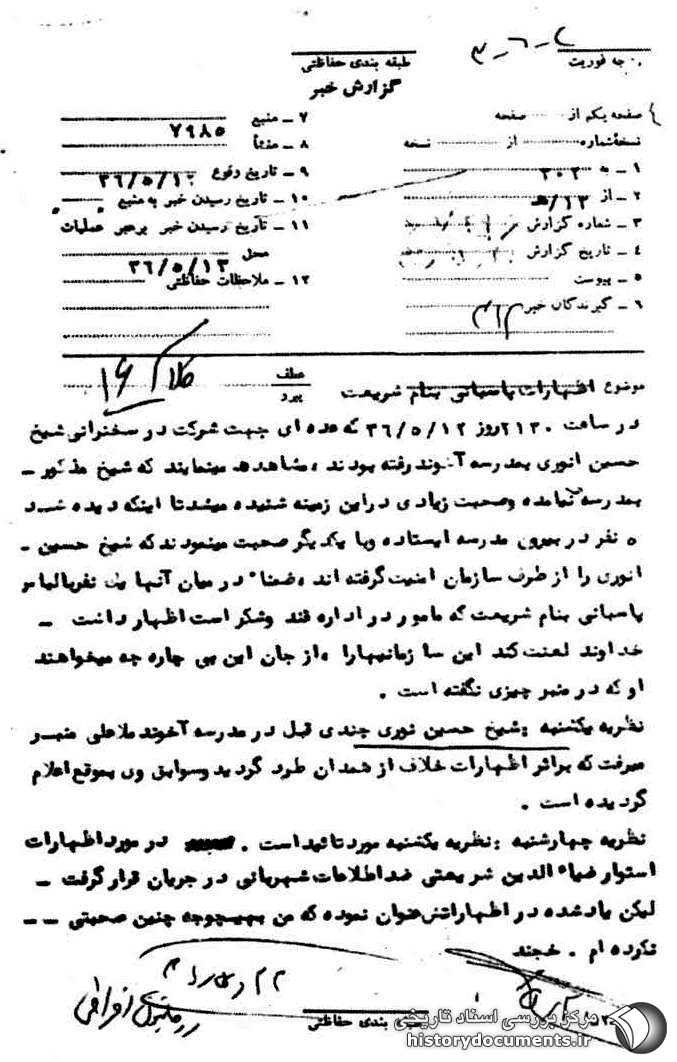 طبقه بندی حفاظتی
گزارش خبر
جه فوریت
صفحه یکم از ........ صفحه
نسخه شماره ........ از ........ نسخه
۱ ـ به ۳۰۲
۲ ـ از ۱۳/هـ
۳ ـ شماره گزارش
۴ ـ تاریخ گزارش
۵ ـ پیوست
۶ ـ گیرندگان خبر ۳۱۲
۷ ـ منبع ۷۹۸۵
۸ ـ منشأ
۹ ـ تاریخ وقوع ۳۶/۵/۱۲
۱۰ ـ تاریخ رسیدن خبر به منبع
۱۱ ـ تاریخ رسیدن خبر برهبر عملیات
محل ۳۶/۵/۱۳
۱۲ ـ ملاحظات حفاظتی
عطف
پیرو
موضوع اظهارات پاسبانی بنام شریعت
در ساعت ۲۱۳۰ روز ۳۶/۵/۱۲ که عده ای جهت شرکت در سخنرانی شیخ
حسین انوری بمدرسه آخوند رفته بودند ، مشاهده مینمایند که شیخ مذکور ـ
بمدرسه نیامده وصحبت زیادی دراین زمینه شنیده میشد تا اینکه دیده شد
۵ نفر در بیرون مدرسه ایستاده وبا یکدیگر صحبت مینمودند که شیخ حسین ـ
انوری را از طرف سازمان امنیت گرفته اند ، ضمناً در میان آنها یک نفر بالباس
پاسبانی بنام شریعت که مامور در اداره قند وشکر است اظهار داشت ـ
خداوند لعنت کند این سا زمانیهارا ، از جان این بی چاره چه میخواهند
او که در منبر چیزی نگفته است .
نظریه یکشنبه : شیخ حسین نوری چندی قبل در مدرسه آخوند ملاعلی منبر
میرفت که براثر اظهارات خلاف از همدان طرد گردید وسوابق وی بموقع اعلام
گردیده است .
نظریه چهارشنبه : نظریه یکشنبه مورد تائید است . در مورد اظهارات
استوار ضیاء الدین شریعتی ضد اطلاعات شهربانی در جریان قرار گرفت ـ
لیکن یاد شده در اظهاراتش عنوان نموده که من بهیچوجه چنین صحبتی ــ
نکرده ام . خجند
طبقه بندی حفاظتی
مرکز بررسی اسناد تاریخی
historydocuments.ir